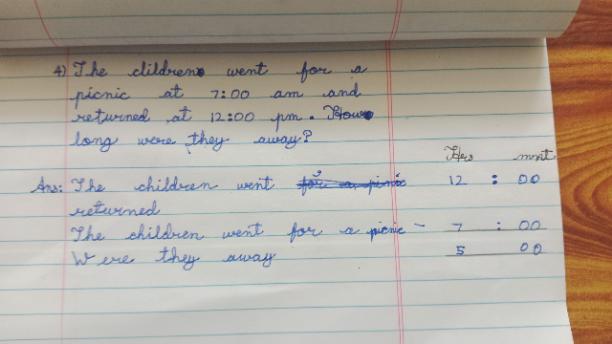 4) The clildren went for a
picnic at 7:00 am and
returned at 12:00 pm. How
long were they away?
Hrs mnt
Ans: The children went for a picnic 12 : 00
returned
The children went for a picnic - 7 : 00
Were they away 5 00